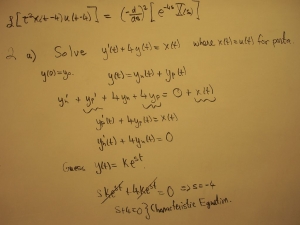 L[τ²x(t-4)u(t-4)] = (-d/ds)² [e^-4s X(s)]
2. a) Solve y'(t)+4y(t)=x(t) where x(t)=u(t) for part a
y(0)=y₀. y(t)=yₕ(t)+yₚ(t)
yₕ' + yₚ' + 4yₕ + 4yₚ = 0 + x(t)
yₚ'(t)+4yₚ(t)=x(t)
yₕ'(t)+4yₕ(t)=0
Guess y(t)=Ke^st
sKe^st+4Ke^st=0 ⇒s=-4
s+4=0 } Characteristic Equation.